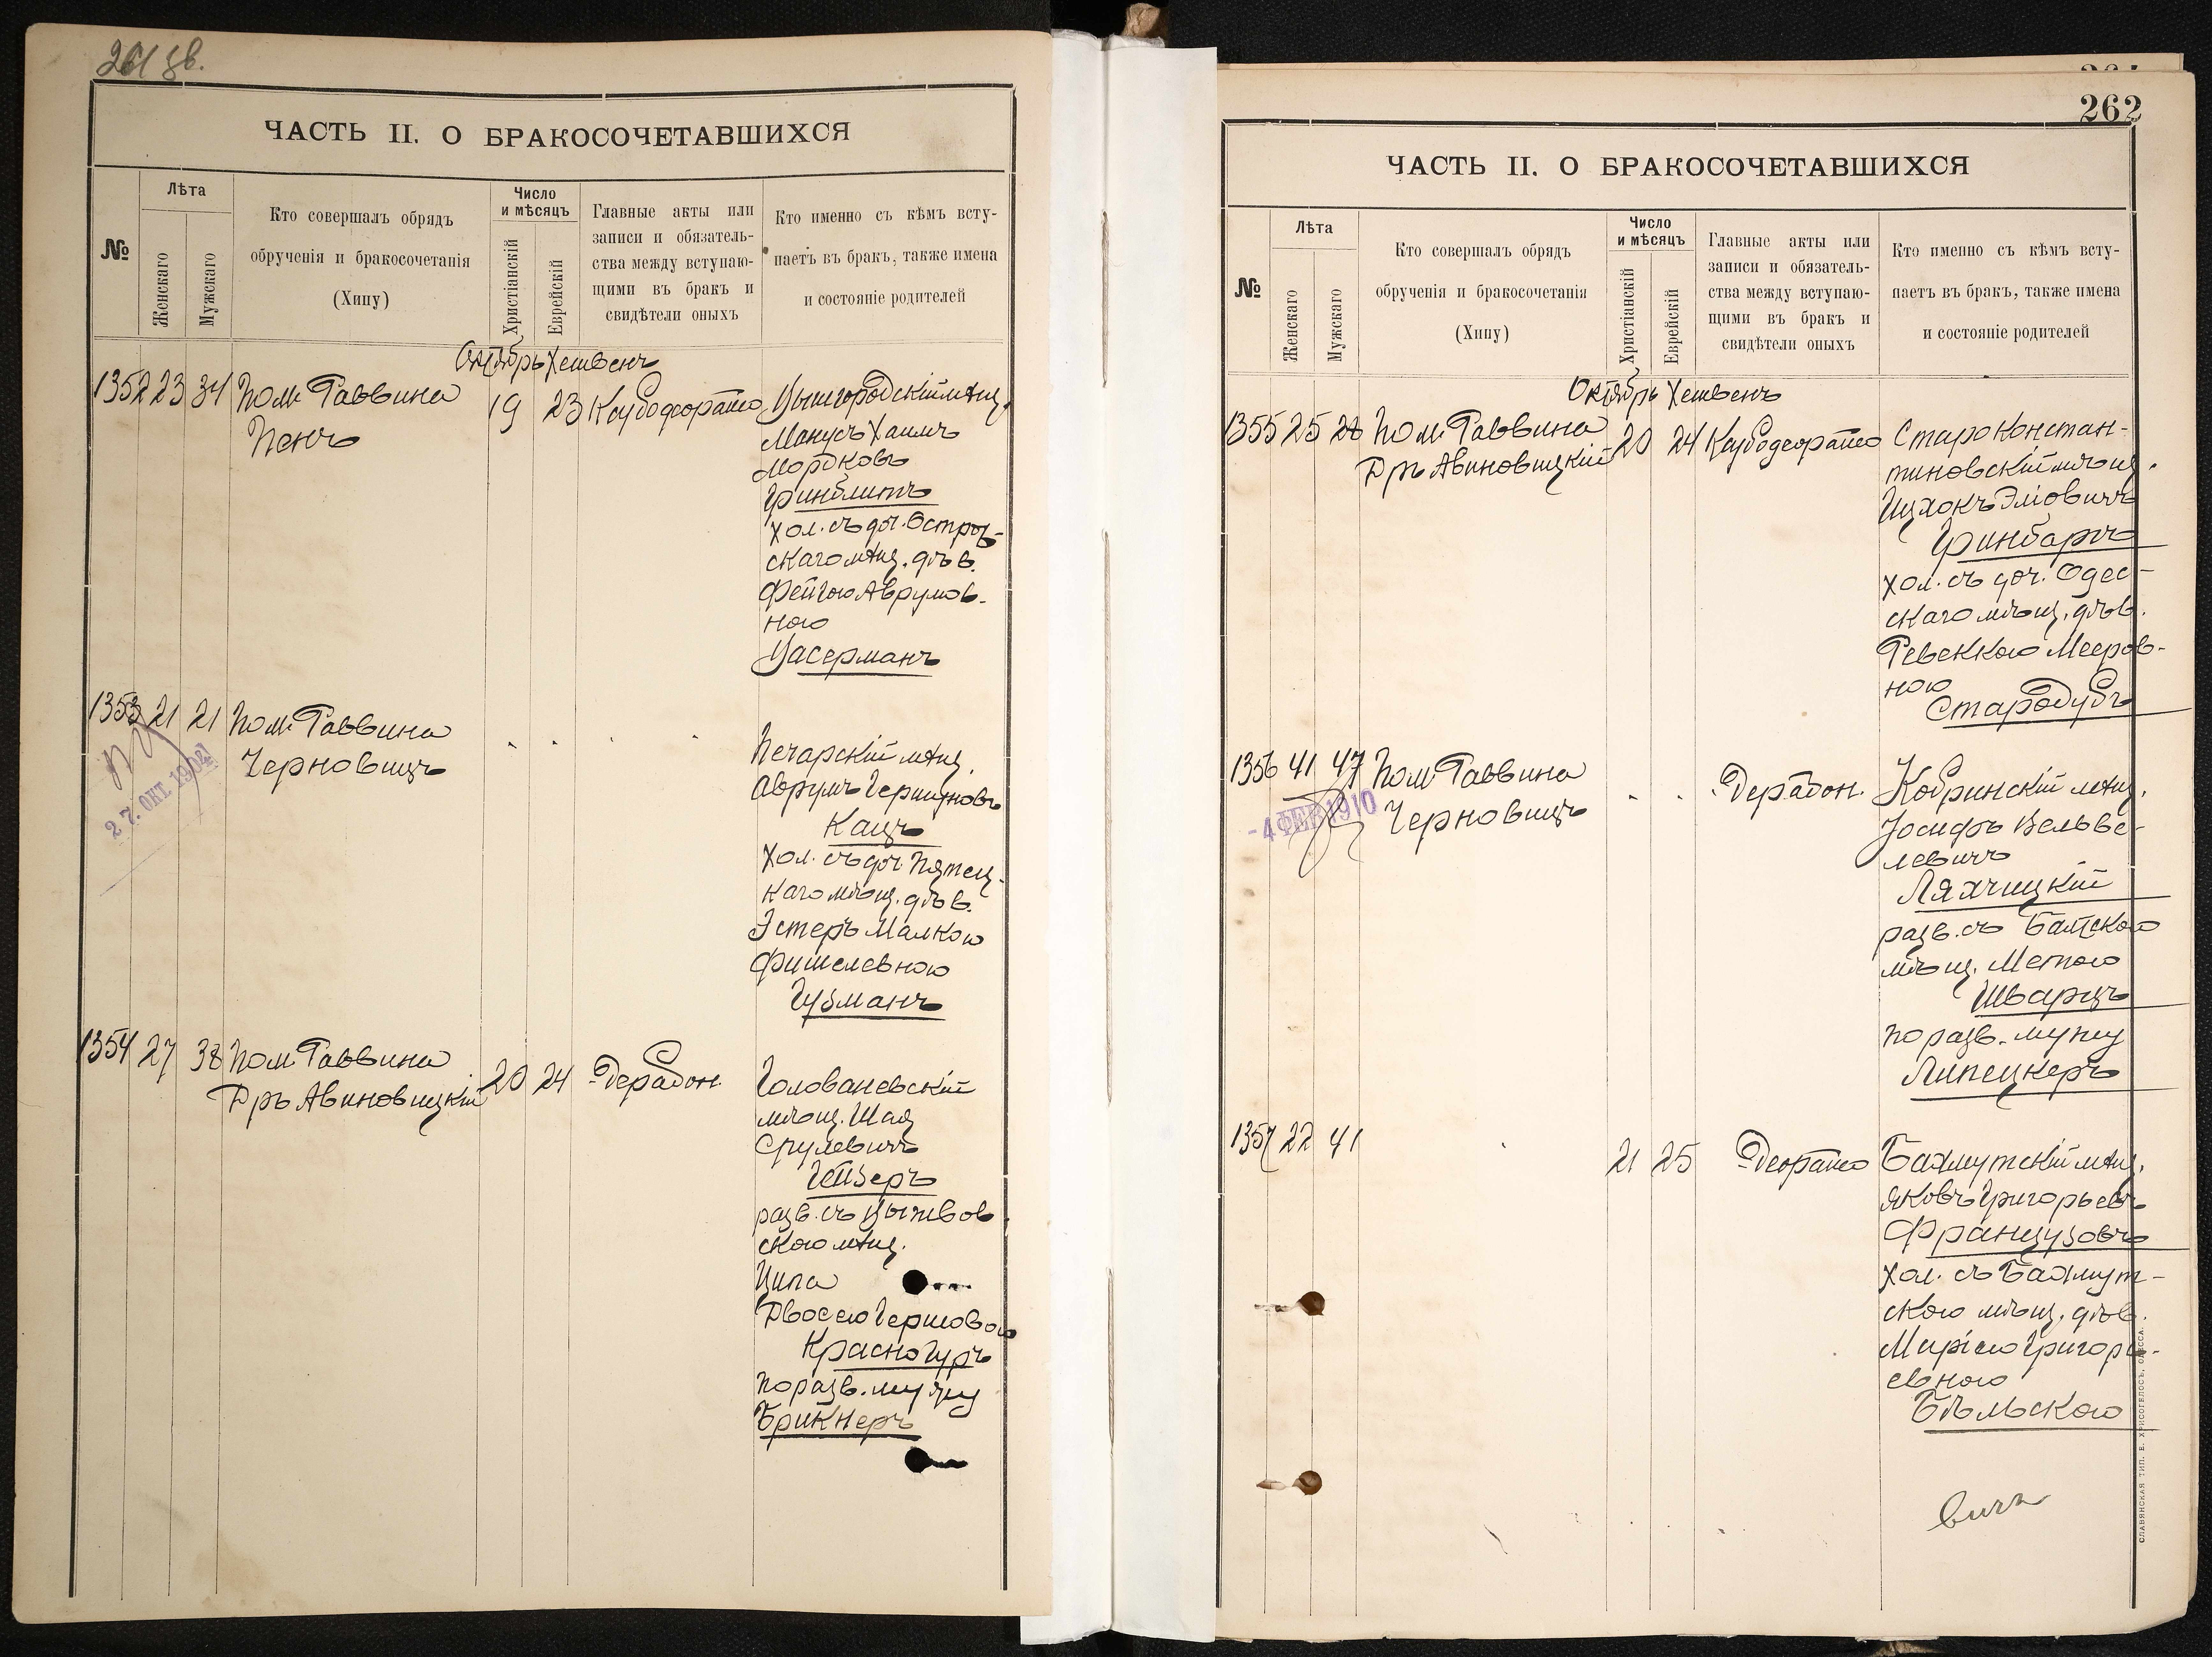 261 зв.
ЧАСТЬ II. О БРАКОСОЧЕТАВШИХСЯ
№
Лѣта
Женскаго
Мужскаго
Кто совершалъ обрядъ
обрученія и бракосочетанія
(Хипу)
Число
и мѣсяцъ
Христіанскій
Еврейскій
Главные акты или
записи и обязатель-
ства между вступаю-
щими въ бракъ и
свидѣтели оныхъ
Кто именно съ кѣмъ всту-
паетъ въ бракъ, также имена
и состояніе родителей
Октябрь Хешвенъ
1352 23 34 Пом. Раввина
Пенъ
19 23
мѣщ.
Манусъ Хаимъ
Мордковъ
Гринблитъ
хол. съ доч. Остро-
скаго мѣщ. дѣв.
Фейгою Аврумов-
ною
Васерманъ
1353 21 21 Пом. Раввина
Черновицъ
27. ОКТ. 1904
Печарскій мѣщ.
Аврумъ Гершуновъ
Кацъ
хол. съ доч. Пятец-
каго мѣщ. дѣв.
Эстеръ Малкою
Фишелевною
Гузманъ
1354 27 38 Пом. Раввина
Дръ Авиновицкій
20 24
Голованевскій
мѣщ. Шая
Срулевичъ
Гейзеръ
разв. съ
скою мѣщ.
Ципа
Двосею Гершовою
Красногуръ
по разв. мужу
Брикнеръ
262
ЧАСТЬ II. О БРАКОСОЧЕТАВШИХСЯ
№
Лѣта
Женскаго
Мужскаго
Кто совершалъ обрядъ
обрученія и бракосочетанія
(Хипу)
Число
и мѣсяцъ
Христіанскій
Еврейскій
Главные акты или
записи и обязатель-
ства между вступаю-
щими въ бракъ и
свидѣтели оныхъ
Кто именно съ кѣмъ всту-
паетъ въ бракъ, также имена
и состояніе родителей
Октябрь Хешвенъ
1355 25 28 Пом. Раввина
Дръ Авиновицкій
20 24
Староконстан-
тиновскій мѣщ.
Ицхокъ Эліовичъ
Гринбаргъ
хол. съ доч. Одес-
скаго мѣщ. дѣв.
Ревеккою Мееров-
ною
Стародубъ
1356 41 47 Пом. Раввина
Черновицъ
-4 ФЕВ 1910
Кобринскій мѣщ.
Іосифъ Вельве-
левичъ
Ляхчицкій
разв. съ Балтскою
мѣщ. Метою
Шварцъ
по разв. мужу
Липецкеръ
1357 22 41
21 25
Бахмутскій мѣщ.
Яковъ Григорьевъ
Французовъ
хол. съ Бахмут-
скою мѣщ. дѣв.
Маріею Григорь-
евною
Бѣльскою
СЛАВЯНСКАЯ ТИП. Е. ХРИСОГЕЛОСЪ, ОДЕССА.